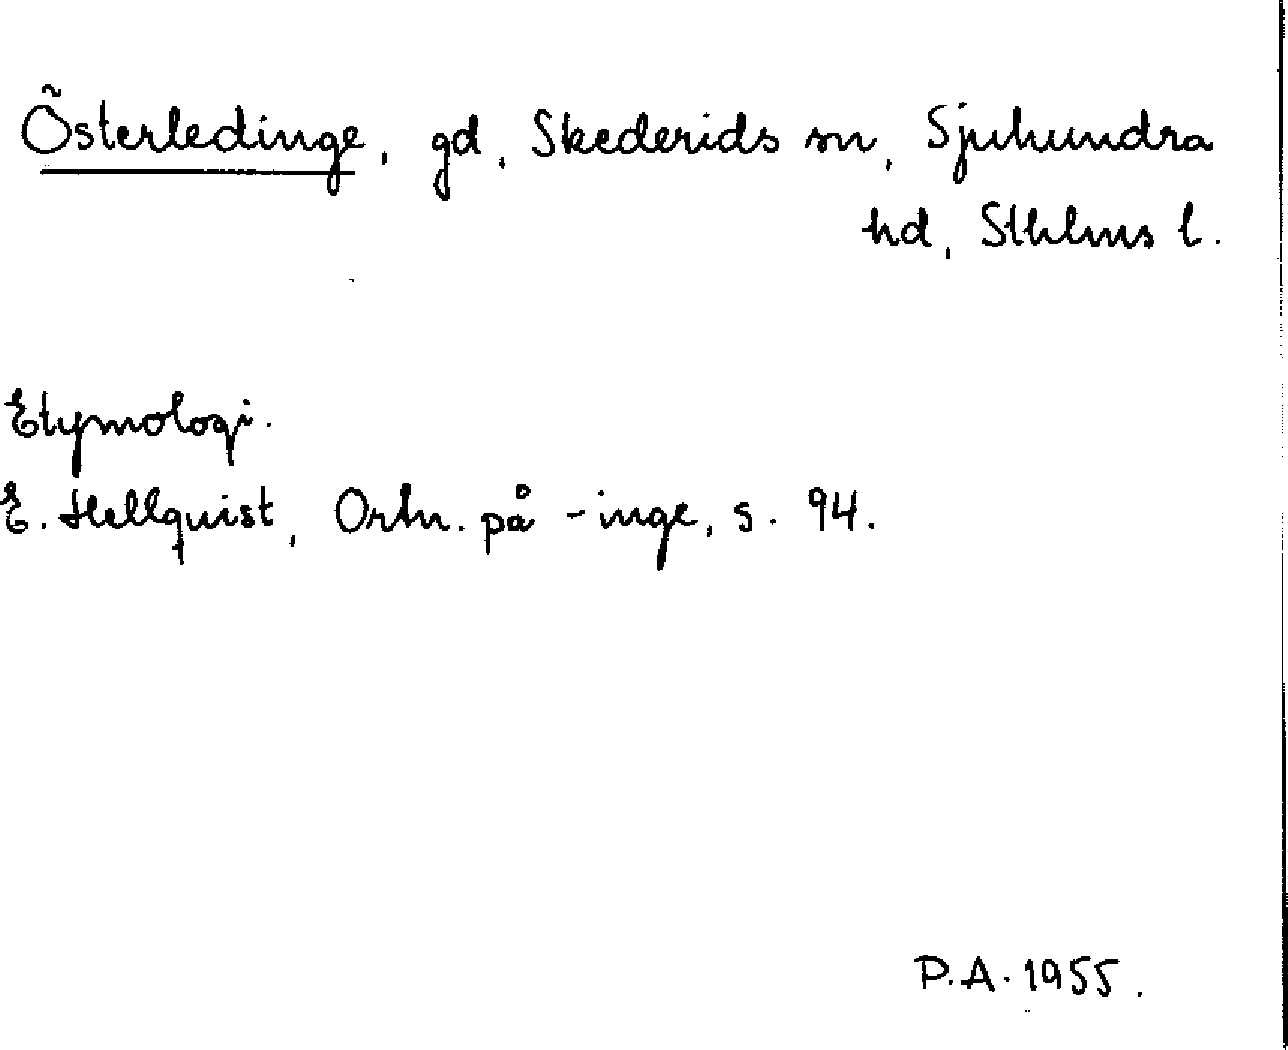 Österledinge, gd, Skederids sn, Sjuhundra
hd, Sthlms l.
Etymologi.
E. Hellquist, Ortn. på -inge, s. 94.
P.A. 1955.